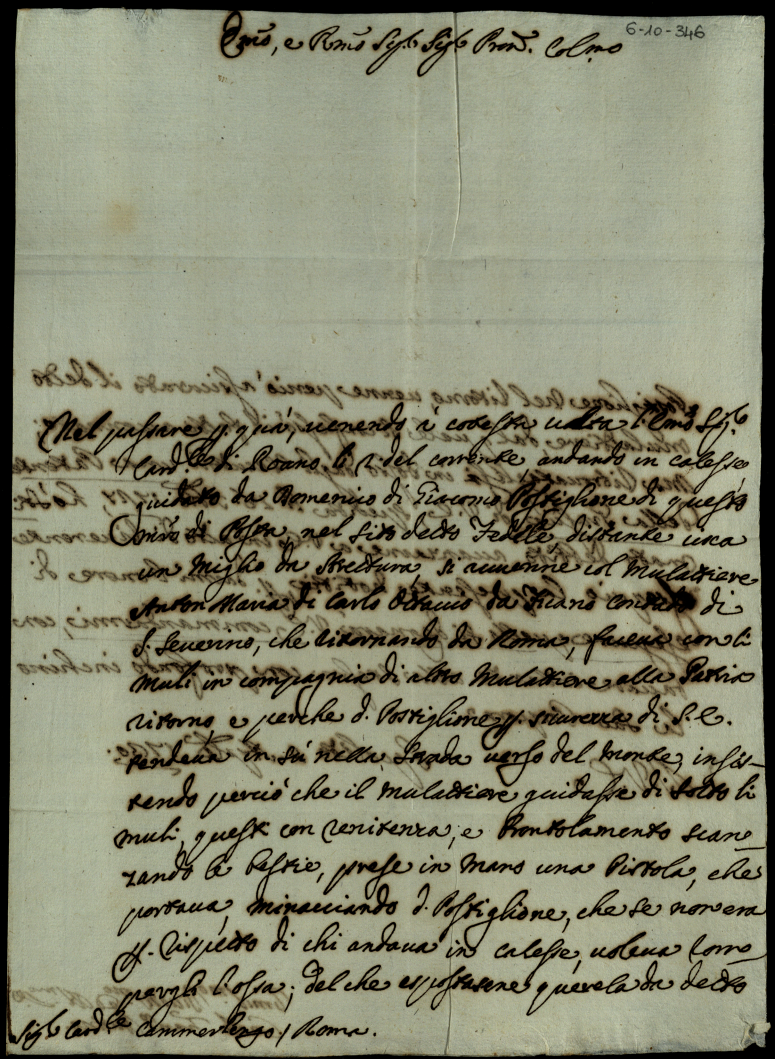 6-10-346
Emo, e Rmo Sigr Sigr Pron. Colmo
Nel passare p. quà, venendo à codesta volta l'Emo Sigr
Cardle di Roano li 2 del corrente, andando in calesse
guidato da Domenico di Giacomo Postiglione di questo
di Posta, nel sito detto Fedele distante circa
un Miglio da Strettura, si avvenne col Mulattiere
Anton Maria di Carlo da Fiano Contado di
S. Severino, che ritornando da Roma, faceva con li
Muli in compagnia di altro Mulattiere alla Patria
ritorno e perche d. Postiglione p. sicurezza di S. E.
tendeva in sù nella strada verso del Monte, insis-
tendo perciò che il Mulattiere guidasse di sotto li
muli, questi con renitenza, e Brontolamento scan-
zando le bestie, prese in Mano una Pistola, che
portava, minacciando d. Postiglione, che se non era
p. rispetto di chi andava in calesse, voleva rom-
pergli l'ossa; del che espostasene querela da detto
Sigr Cardle Cammerlengo / Roma.